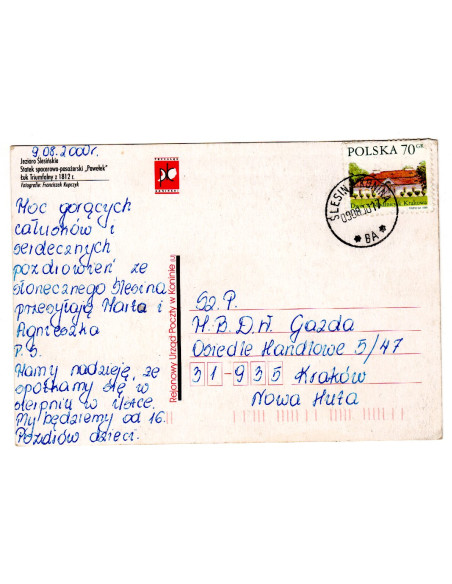 9.08.2000r.
Jezioro Ślesińskie
Statek spacerowo-pasażerski „Pawełek”
Łuk Triumfalny z 1812 r.
Fotografia: Franciszek Kupczyk
Moc gorących
całusków i
serdecznych
pozdrowień ze
słonecznego Ślesina
przesyłają Marta i
Agnieszka
P.S.
Mamy nadzieję, że
spotkamy się w
sierpniu w
My będziemy od 16.
Pozdrów dzieci.
Rejonowy Urząd Poczty w Koninie
POLSKA 70 GR
Krakowa
ŚLESIN
090800
* BA *
Sz. P.
M.B.D.A. Gazda
Osiedle Handlowe 5/47
31-935 Kraków
Nowa Huta